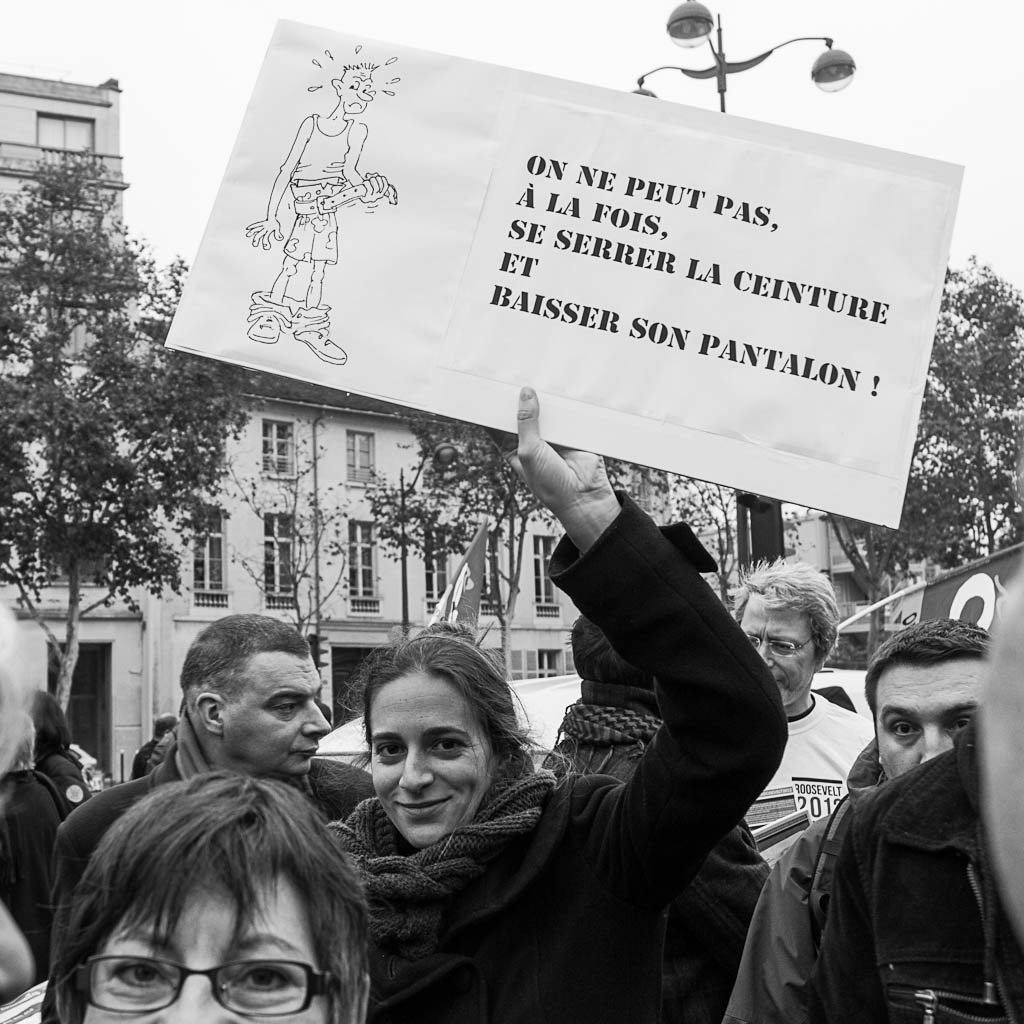 ON NE PEUT PAS,
À LA FOIS,
SE SERRER LA CEINTURE
ET
BAISSER SON PANTALON !
ROOSEVELT
2012